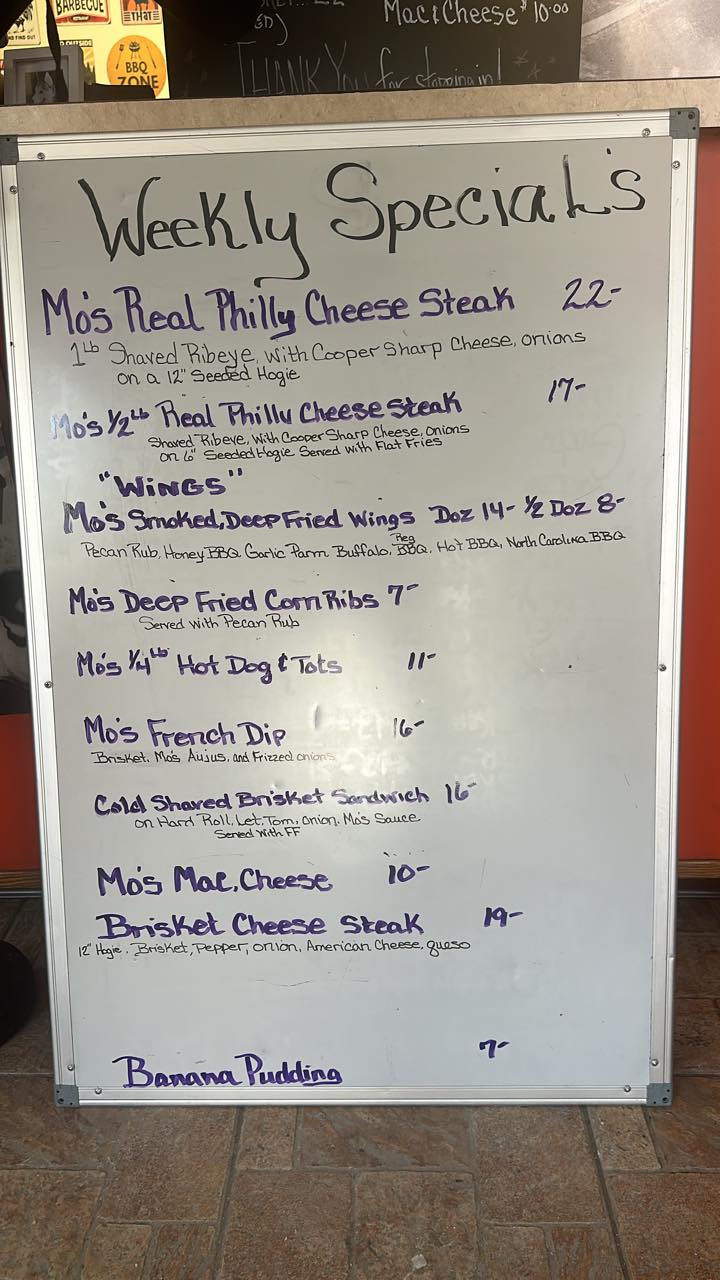 BARBECUE
THAT
AND FIND OUT
OUTSIDE
BBQ
ZONE
Mac & Cheese $10.00
THANK YOU for stopping in!
Weekly Special's
Mo's Real Philly Cheese Steak 22-
1Lb Shaved Ribeye, with Cooper Sharp Cheese, onions
on a 12" Seeded Hogie
Mo's 1/2Lb Real Philly Cheese Steak 17-
Shaved Ribeye, with Cooper Sharp Cheese, onions
on 6" Seeded Hogie Served with Flat Fries
"WINGS"
Mo's Smoked, Deep Fried Wings Doz 14- 1/2 Doz 8-
Pecan Rub, Honey BBQ, Garlic Parm, Buffalo, Reg BBQ, Hot BBQ, North Carolina BBQ
Mo's Deep Fried Corn Ribs 7-
Served with Pecan Rub
Mo's 1/4Lb Hot Dog & Tots 11-
Mo's French Dip 16-
Brisket, Mo's Aujus, and Frizzed onions
Cold Shaved Brisket Sandwich 16-
on Hard Roll, Let, Tom, onion, Mo's Sauce
Served with FF
Mo's Mac, Cheese 10-
Brisket Cheese Steak 19-
12" Hogie, Brisket, Pepper, onion, American Cheese, queso
Banana Pudding 7-